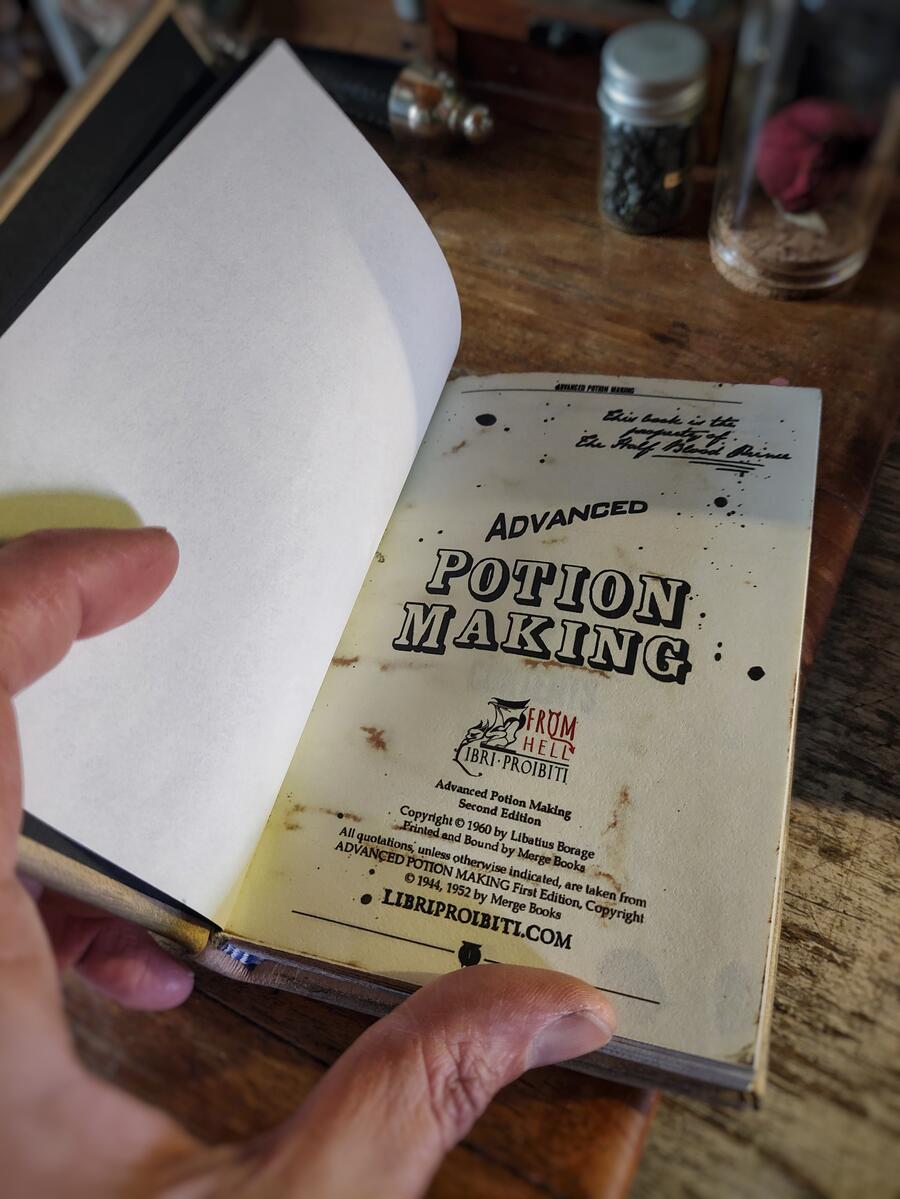 ADVANCED POTION MAKING
This book is the
property of
The Half Blood Prince
ADVANCED
POTION
MAKING
FROM
HELL
LIBRI·PROIBITI
Advanced Potion Making
Second Edition
Copyright © 1960 by Libatius Borage
Printed and Bound by Merge Books
All quotations, unless otherwise indicated, are taken from
ADVANCED POTION MAKING First Edition, Copyright
© 1944, 1952 by Merge Books
LIBRIPROIBITI.COM
1